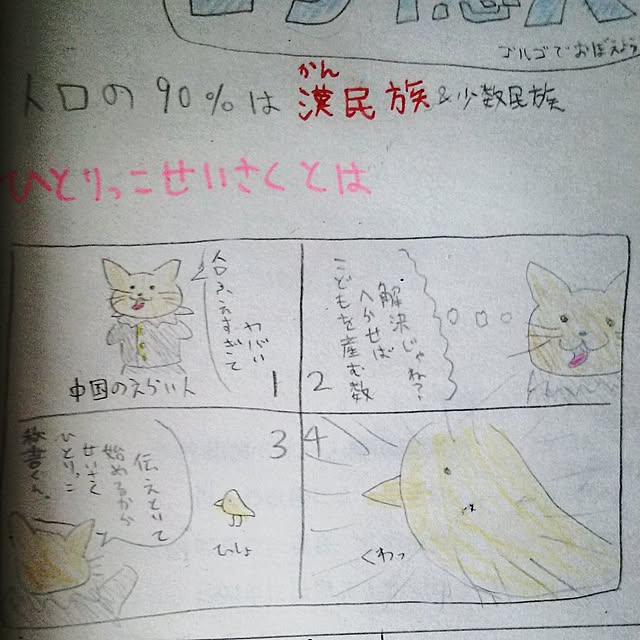 ゴルゴでおぼえよう
かん
人口の90%は漢民族&少数民族
ひとりっこせいさくとは
人口ふえすぎて
ヤバい
中国のえらい人
1
2
こどもを産む数
へらせば
解決じゃね?
3
秘書くん、
ひとりっこ
せいさく
始めるから
伝えといて
ひしょ
4
くわっ